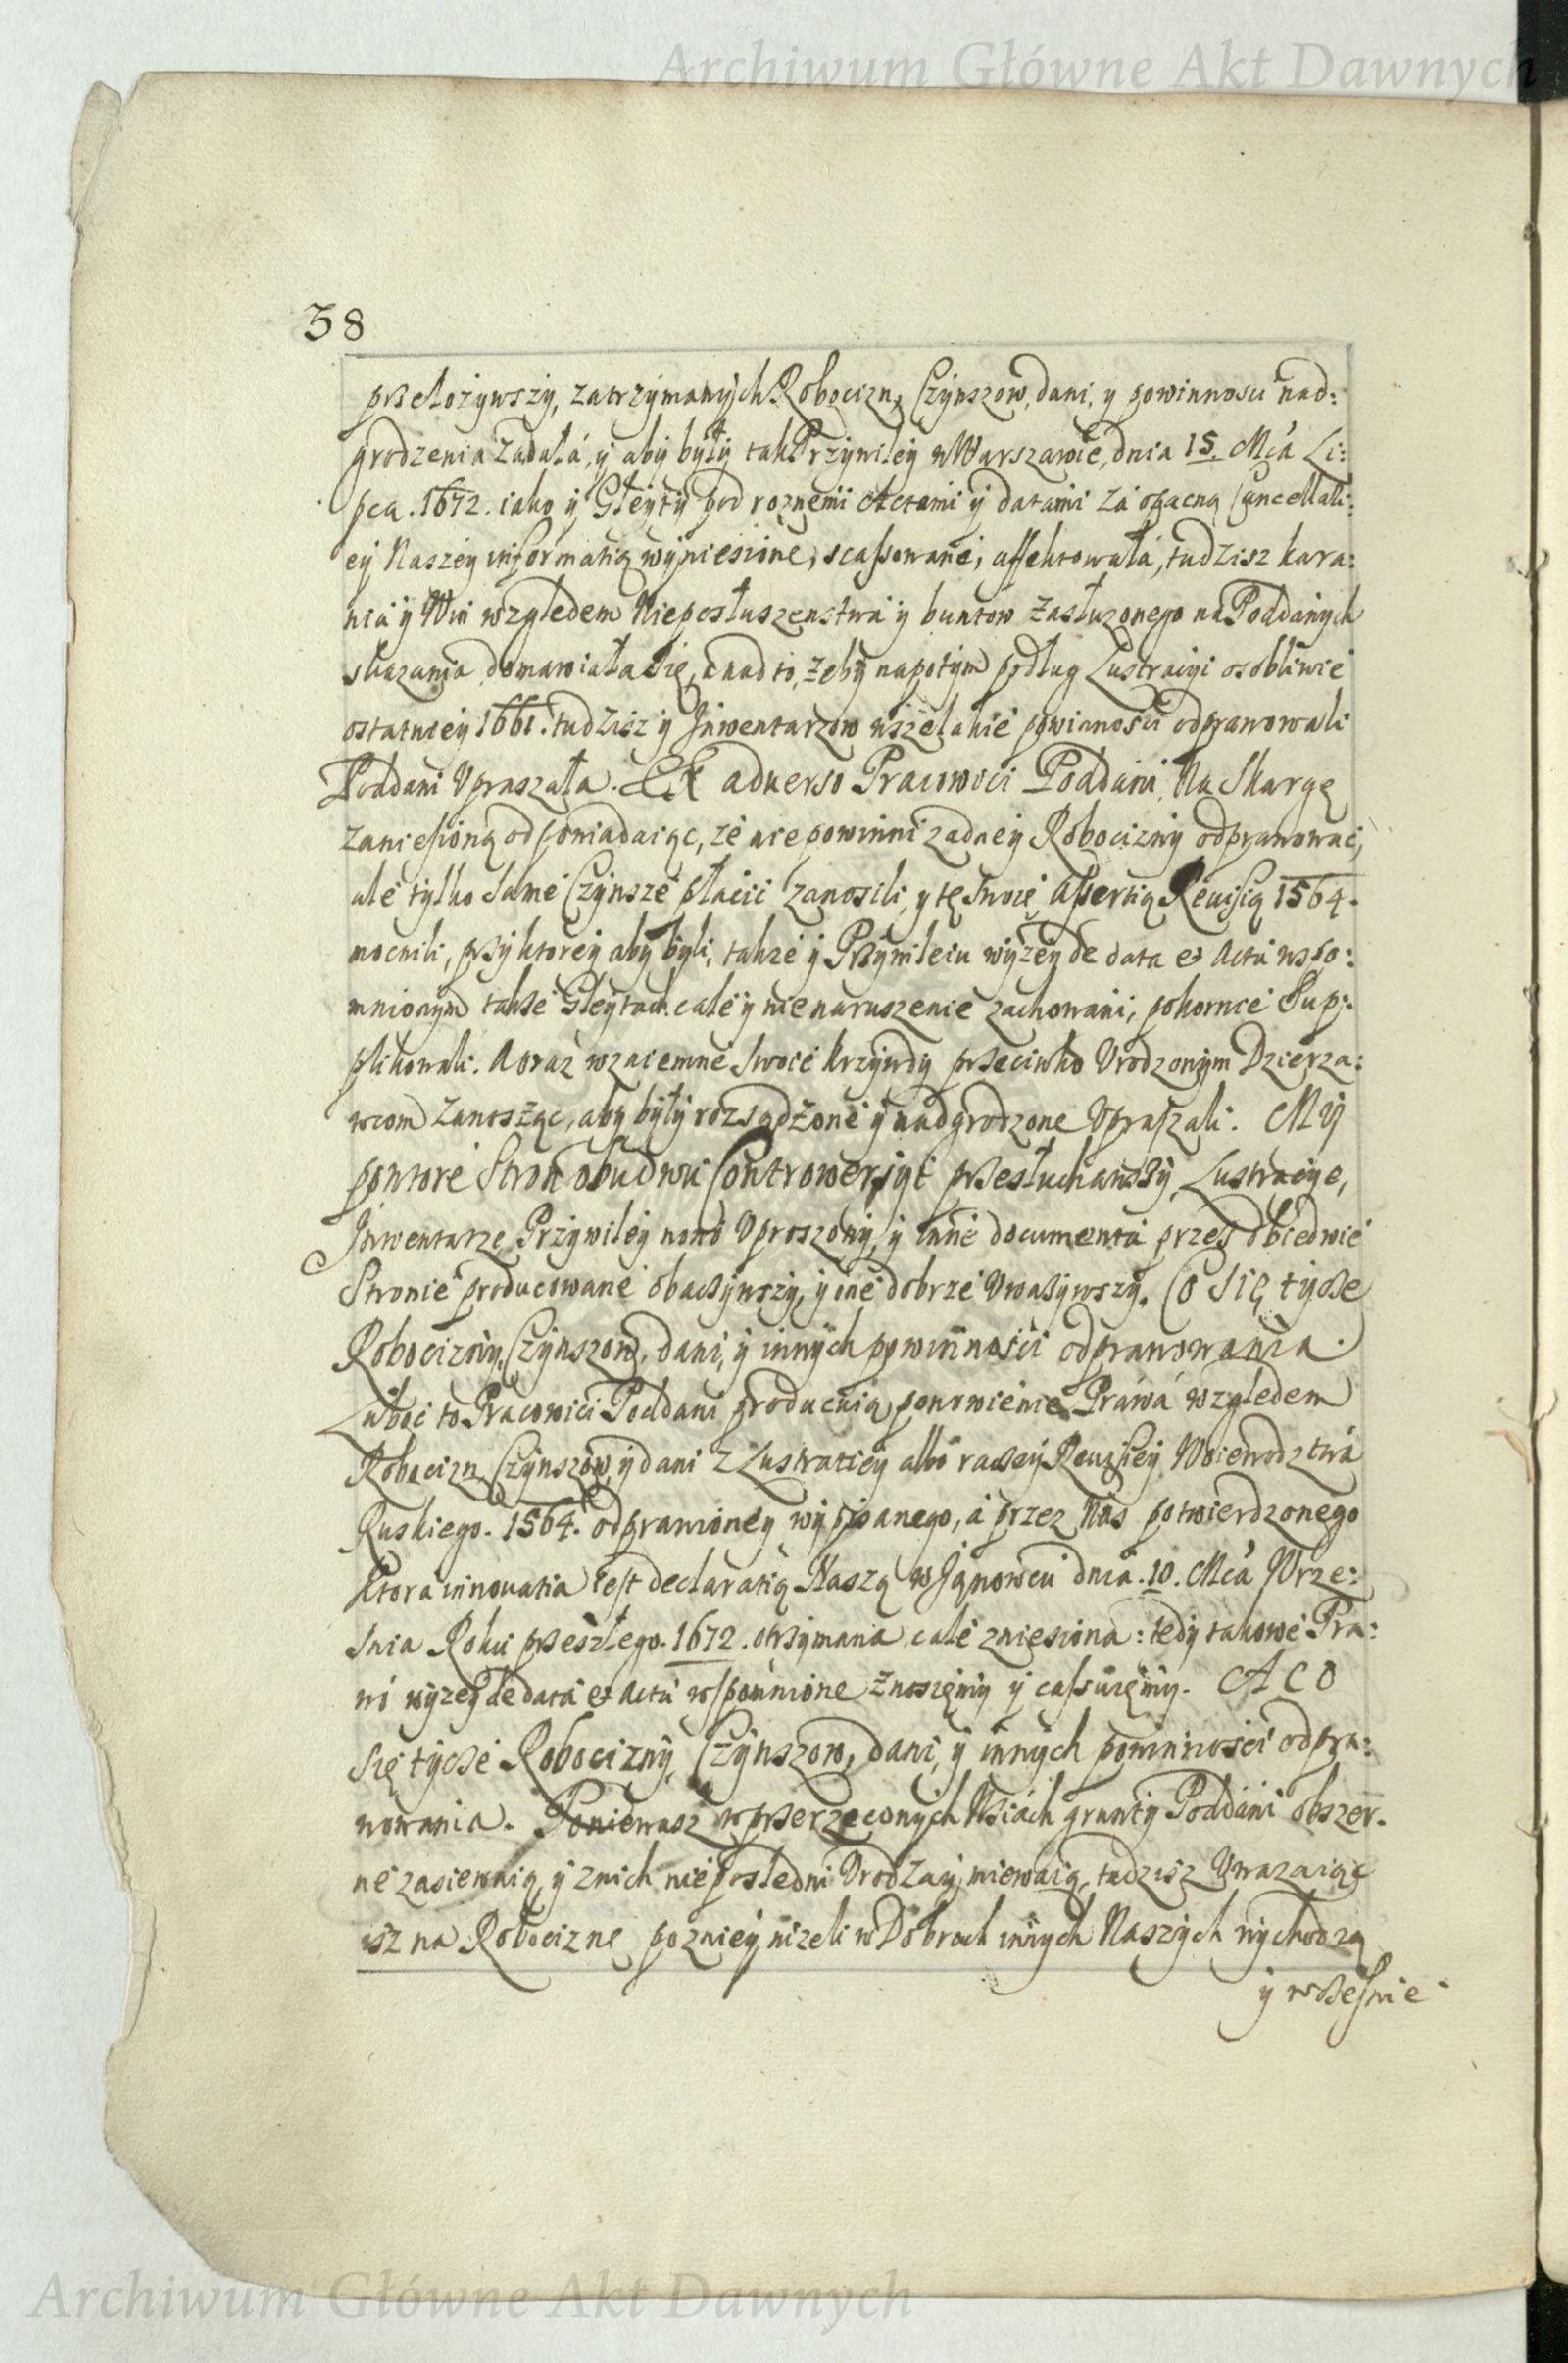 Archiwum Główne Akt Dawnych
38
przełożywszy, zatrzymanych Robocizn, Czynszow, dani, y powinnosci nad:
grodzenia żądała, y aby były tak Przywiley w Warszawie, dnia 15. Mca Li:
pca. 1672. iako y Gleyty pod roznemi Actami y datami za opaczną Cancellari:
ey Naszey informatią wyniesione, scassowane, affektowała, tudzisz kara:
nia y Win względem Nieposłuszenstwa y buntow zasłużonego na Poddanych
skazania domawiała się, a nadto, żeby napotym podług Lustracyi osobliwie
ostatniey 1661. tudzisz y Inwentarzow wszelakie powinnosci odprawowali
Poddani Upraszała. Ex aduerso Pracowici Poddani, Na Skargę
zaniesioną odpowiadaiąc, że nie powinni żadney Robocizny odprawować,
ale tylko same Czynsze płacić zanosili, y tę swoię assertią Reuisią 1564.
mocnili, przy ktorey aby byli, także y Przywileiu wyżey de data et actu wspo:
mnionym także Gleytach cale y nienaruszenie zachowani, pokornie Sup:
plikowali. A oraz wzaiemne swoie krzywdy przeciwko Urodzonym Dzierża:
wcom zanosząc, aby były rozsądzone y nadgrodzone Upraszali. MY
powtore Stron obudwu Controwersyi przesłuchawszy, Lustracye,
Inwentarze Przywiley nowo Uproszony, y inne documenta przez obiedwie
Stronie producowane obaczywszy, y one dobrze Uważywszy. Co się tycze
Robocizny, Czynszow, dani, y innych powinnosci odprawowania.
Luboć to Pracowici Poddani producuią ponowienie Prawa względem
Robocizn, Czynszow, y dani z Lustratiey albo raczey Reuisiey Woiewodztwa
Ruskiego. 1564. odprawioney wypisanego, a przez Nas potwierdzonego
ktora innouatia iest declaratią Naszą w Janowcu dnia. 10. Mca Wrze:
snia Roku przeszłego. 1672. otrzymana cale zniesiona: tedy takowe Pra:
wo wyzey de data et actu wspomnione znosięmy y cassuięmy. A CO
się tycze Robocizny, Czynszow, dani, y innych powinnosci odpra:
wowania. Poniewasz w przerzeczonych Wsiach grunty Poddani obszer.
ne zasiewaią, y z nich nie posledni Urodzay miewaią, tudzisz Uważaiąc
isz na Robociznę pozniey, nizeli w Dobrach innych Naszych wychodzą
y wczesnie
Archiwum Główne Akt Dawnych